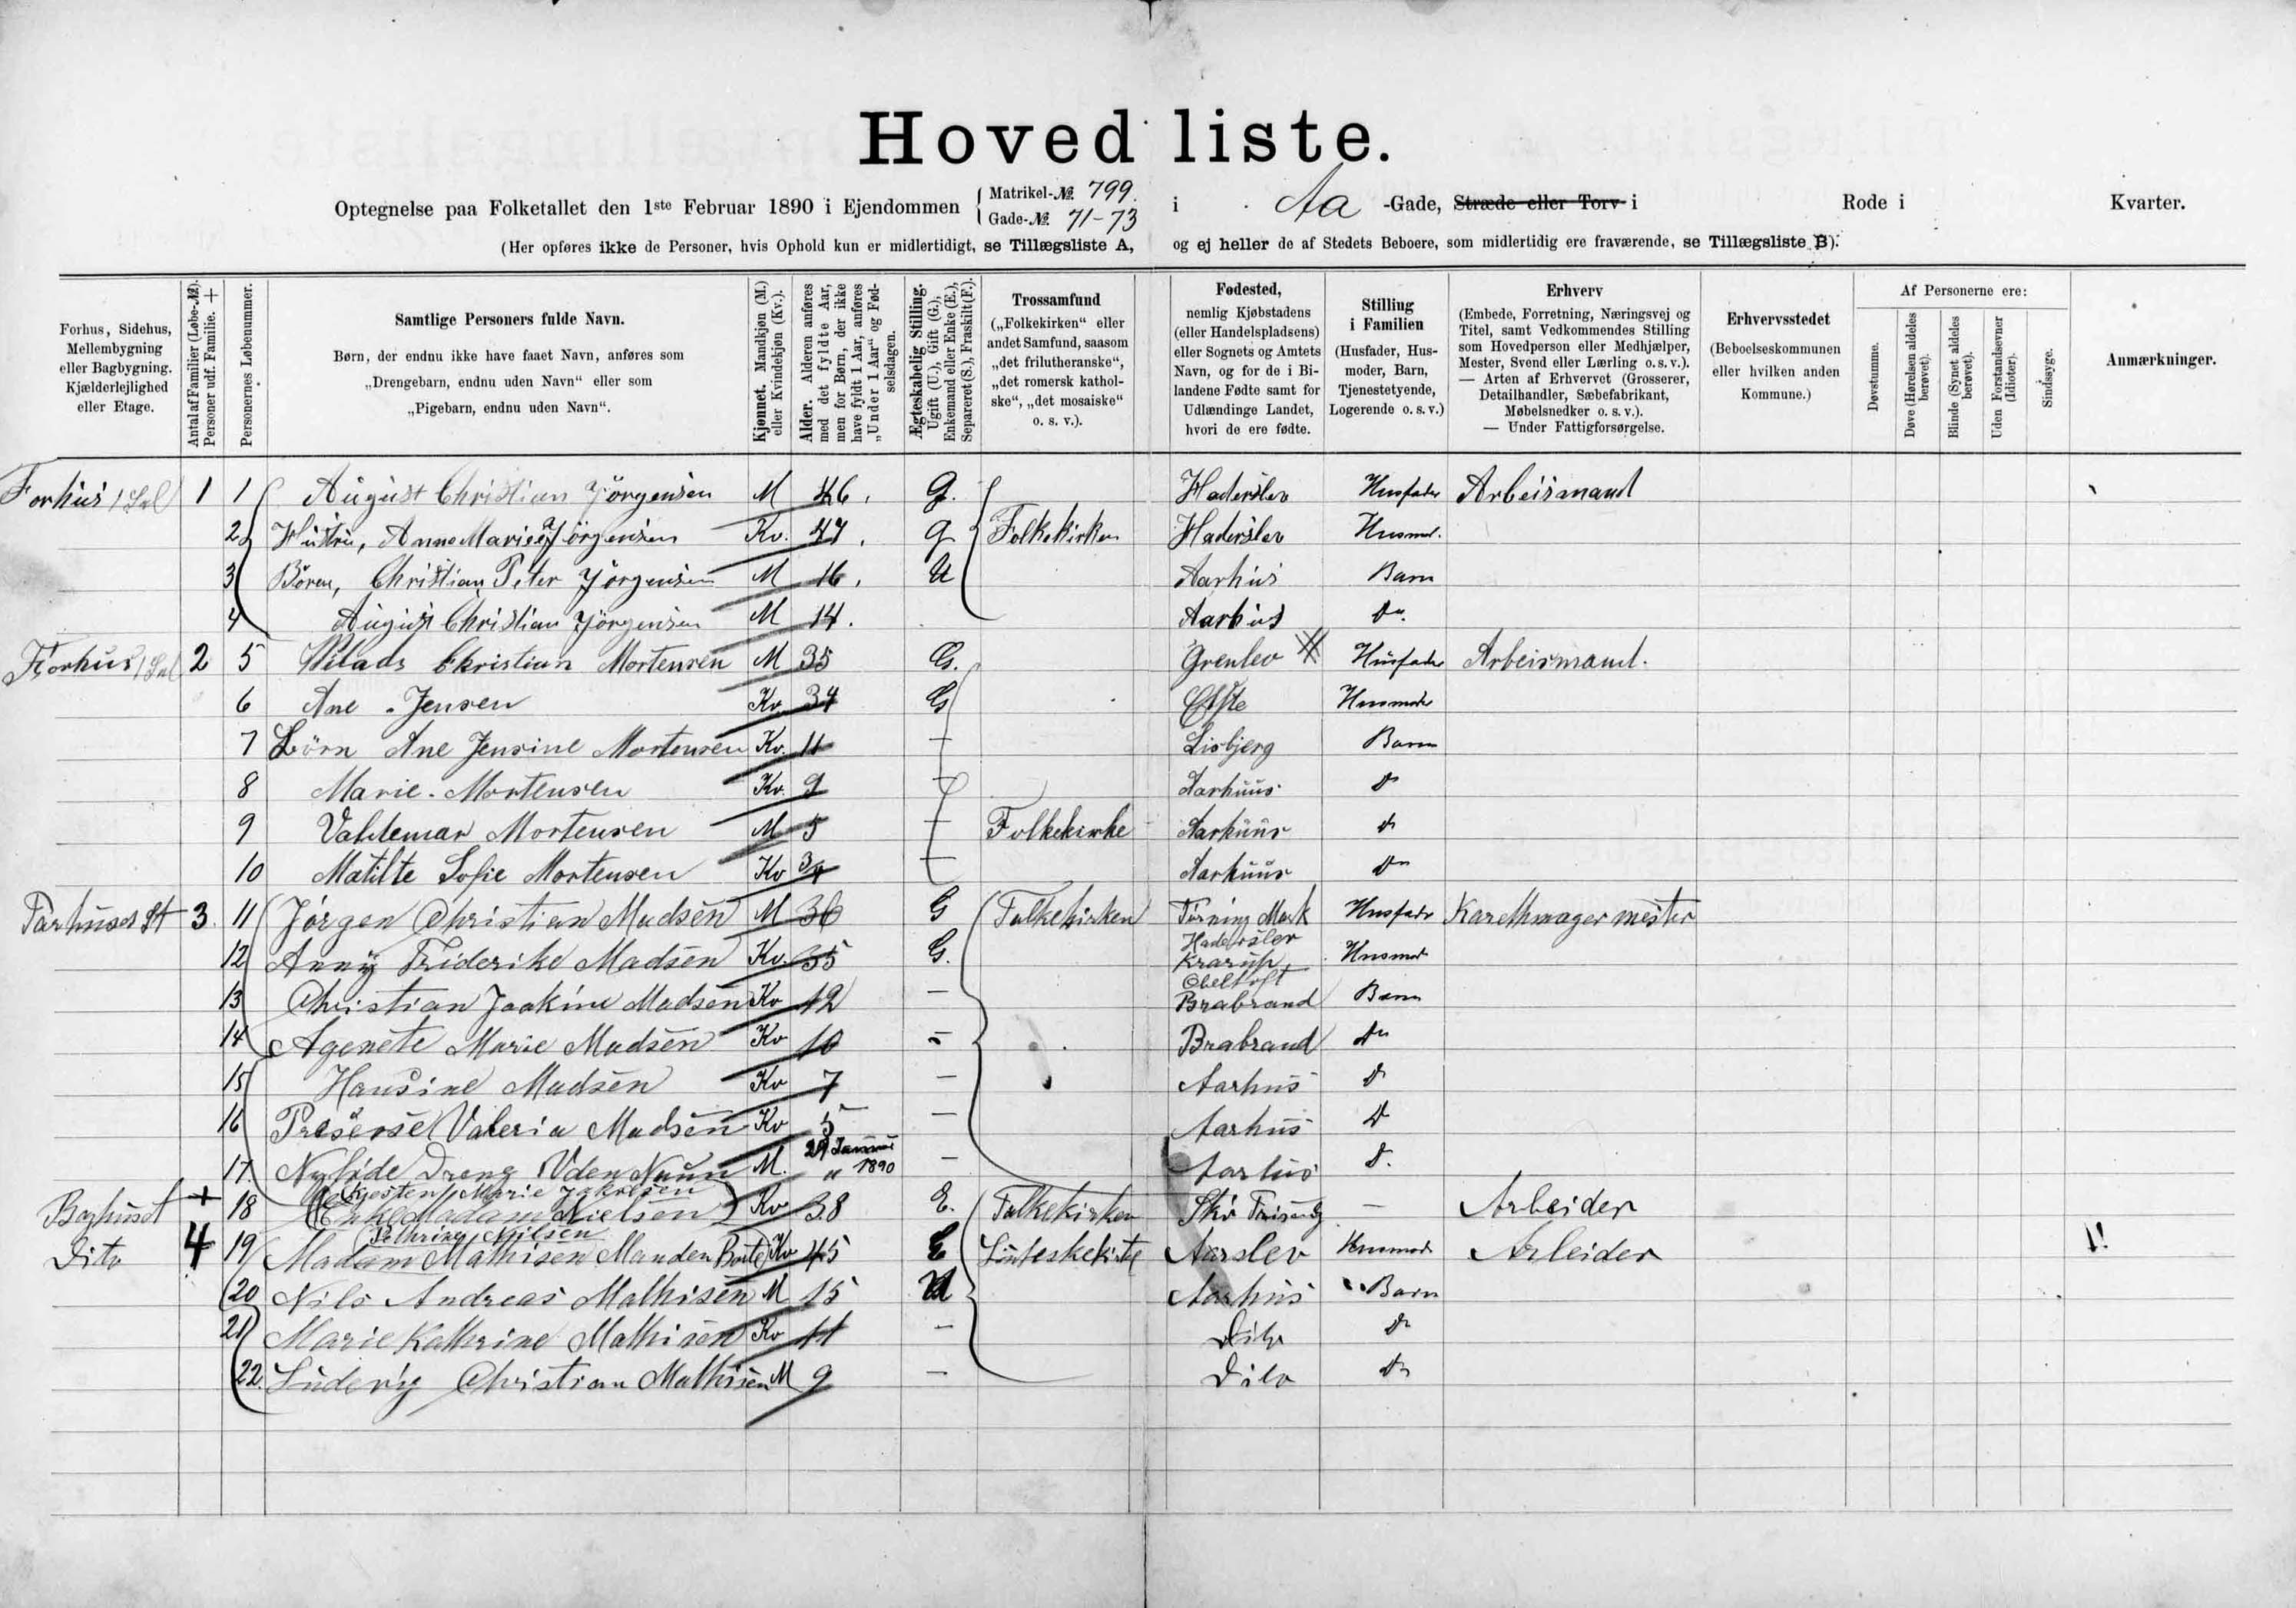 Hovedliste.
Optegnelse paa Folketallet den 1ste Februar 1890 i Ejendommen { Matrikel-№ 799. Gade-№ 71-73 i Aa -Gade, Stræde eller Torv i Rode i Kvarter.
(Her opføres ikke de Personer, hvis Ophold kun er midlertidigt, se Tillægsliste A, og ej heller de af Stedets Beboere, som midlertidig ere fraværende, se Tillægsliste B).
Forhus, Sidehus, Mellembygning eller Bagbygning. Kjælderlejlighed eller Etage.
Antal af Familier (Løbe-№). Personer udf. Familie. +
Personernes Løbenummer.
Samtlige Personers fulde Navn.
Børn, der endnu ikke have faaet Navn, anføres som
„Drengebarn, endnu uden Navn“ eller som
„Pigebarn, endnu uden Navn“.
Kjønnet. Mandkjøn (M.) eller Kvindekjøn (Kv.).
Alder. Alderen anføres med det fyldte Aar, men for Børn, der ikke have fyldt 1 Aar, anføres „Under 1 Aar“ og Fødselsdagen.
Ægteskabelig Stilling. Ugift (U.), Gift (G.), Enkemand eller Enke (E.), Separeret (S.), Fraskilt (F.).
Trossamfund („Folkekirken“ eller andet Samfund, saasom „det frilutheranske“, „det romersk katholske“, „det mosaiske“ o. s. v.).
Fødested, nemlig Kjøbstadens (eller Handelspladsens) eller Sognets og Amtets Navn, og for de i Bilandene Fødte samt for Udlændinge Landet, hvori de ere fødte.
Stilling i Familien (Husfader, Husmoder, Barn, Tjenestetyende, Logerende o. s. v.)
Erhverv (Embede, Forretning, Næringsvej og Titel, samt Vedkommendes Stilling som Hovedperson eller Medhjælper, Mester, Svend eller Lærling o. s. v.). — Arten af Erhvervet (Grosserer, Detailhandler, Sæbefabrikant, Møbelsnedker o. s. v.). — Under Fattigforsørgelse.
Erhvervsstedet (Beboelseskommunen eller hvilken anden Kommune.)
Af Personerne ere:
Døvstumme.
Døve (Hørelsen aldeles berøvet).
Blinde (Synet aldeles berøvet).
Uden Forstandsevner (Idioter).
Sindssyge.
Anmærkninger.
Forhus 1 Sal 1 1 August Christian Jörgensen M 46. G. Haderslev Husfader Arbeismand
2 Hustru, Anne Marie Jörgensen Kv. 47. G Folkekirken Haderslev Husmod.
3 Bören, Christian Peter Jörgensen M 16. U Aarhus Barn
4 August Christian Jörgensen M 14. Aarhus do.
Forhus 1 Sal 2 5 Christian Mortensen M 35 G. Grenlev Husfader Arbeismand.
6 Ane Jensen Kv. 34 G Husmoder
7 Börn Ane Jensine Mortensen Kv. 11 — Lisbjerg Barn
8 Marie Mortensen Kv. 9 — Aarhuus do
9 Valdemar Mortensen M 5 — Folkekirke Aarhuus do
10 Matilte Sofie Mortensen Kv 3/4 — Aarhuus do
3. 11 Jörgen Christian Madsen M 36 G Folkekirken Törning Mark Haderslev Husfader Karethmager mester
12 Anny Friderike Madsen Kv. 35 G. Krarup Ebeltoft Husmod
13 Christian Joakine Madsen Kv 12 — Brabrand Barn
14 Agenete Marie Madsen Kv 10 — Brabrand do
15 Hansine Madsen Kv 7 — Aarhus do
16 Valeria Madsen Kv 5 — Aarhus do
17. Nyföde Dreng Uden Naun M. 29 Januar 1890 — Aarhus do.
Baghuset + 18 Kjesten Marie (Enke Madam Nielsen) Kv 38 E. Folkekirken — Arbeider
Dito 4 19 Kathrine Nilsen Madam Mathisen Manden Borte Kv 45 Aarslev Husmod Arbeider
20 Nils Andreas Mathisen M 15 U Aarhus Barn
21 Marie Kathrine Mathisen Kv 11 — Dito do
22. Ludevig Christian Mathisen M 9 — Dito do